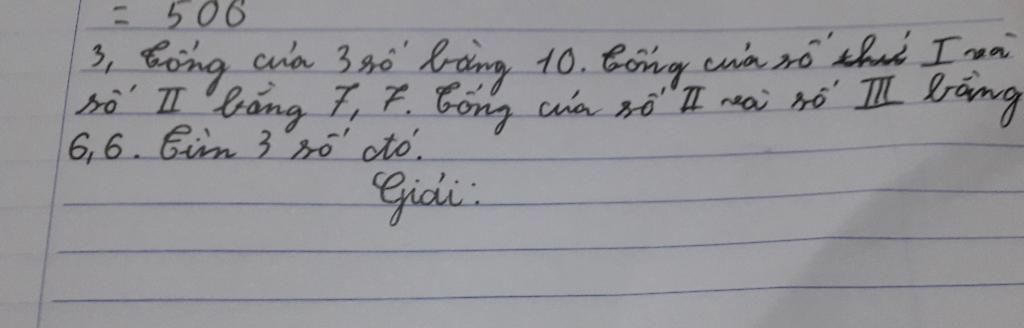 = 506
3, Tổng của 3 số bằng 10. Tổng của số thứ I và
số II bằng 7,7. Tổng của số II và số III bằng
6,6. Tìm 3 số đó.
Giải: